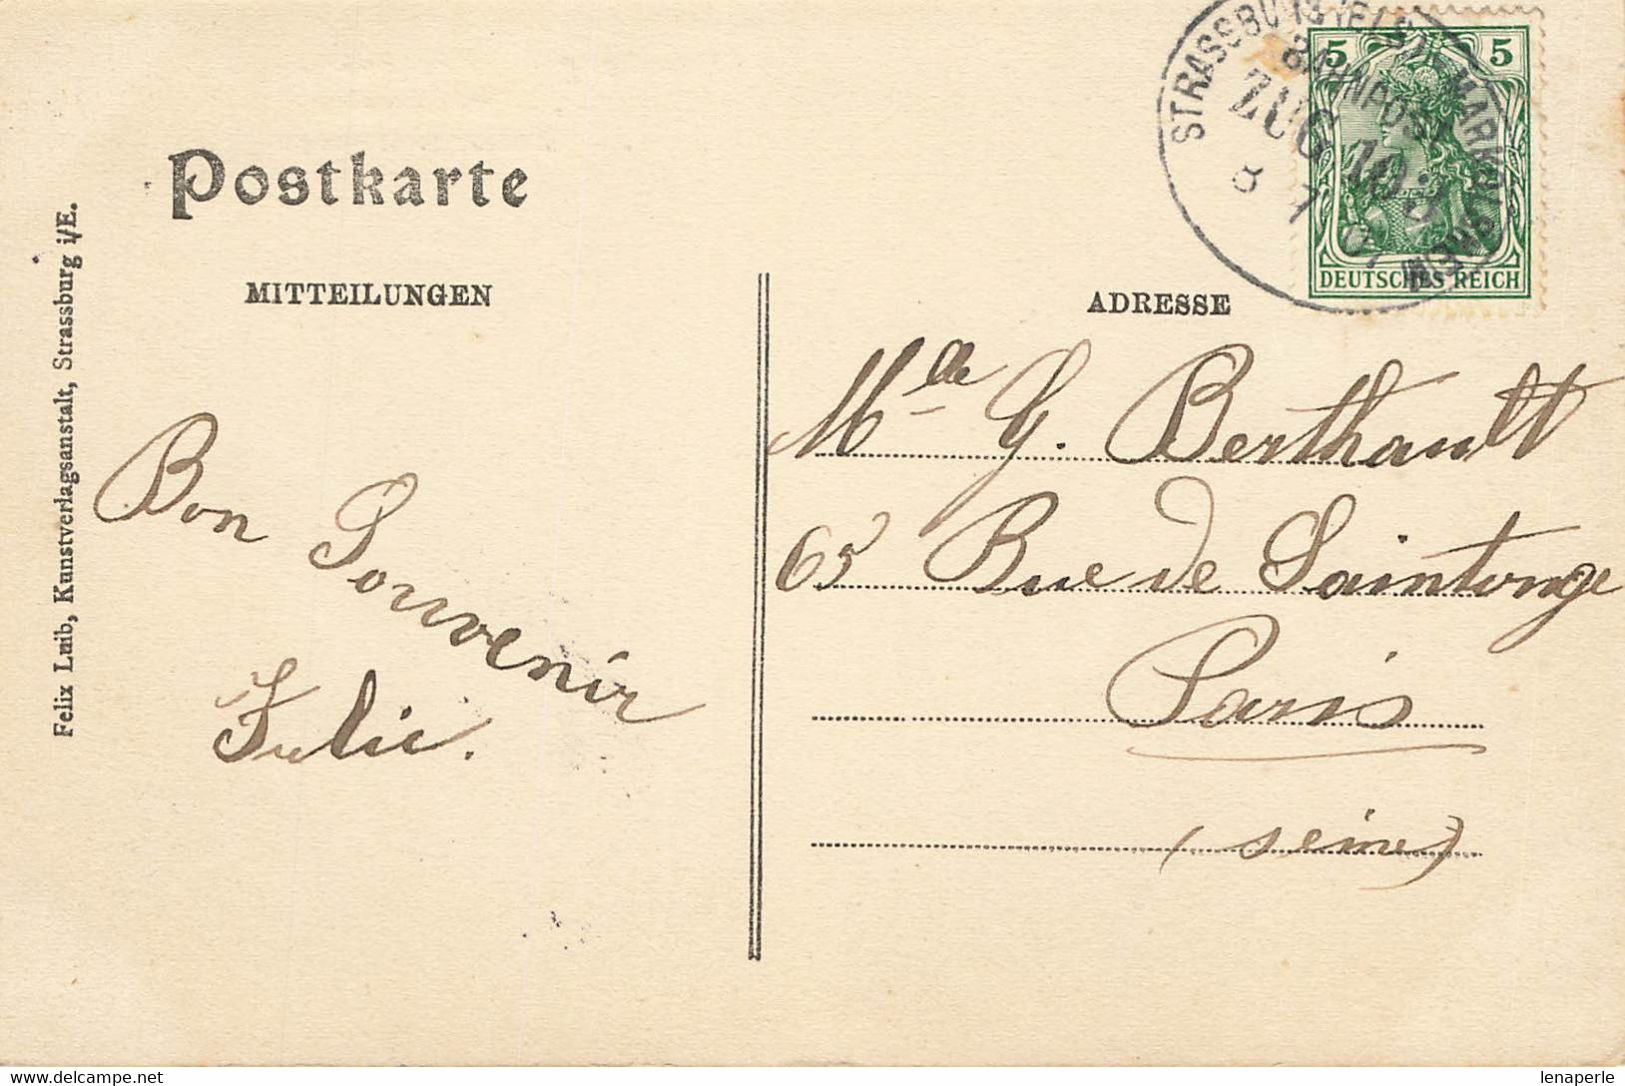 Postkarte
MITTEILUNGEN
ADRESSE
Felix Luib, Kunstverlagsanstalt, Strassburg i/E.
STRASSBURG (ELS)
BAHNPOST
ZUG
8 7
5 5
DEUTSCHES REICH
Bon
Souvenir
Julie.
Mlle G. Berthault
65 Rue de Saintonge
Paris
(Seine)
lenaperle